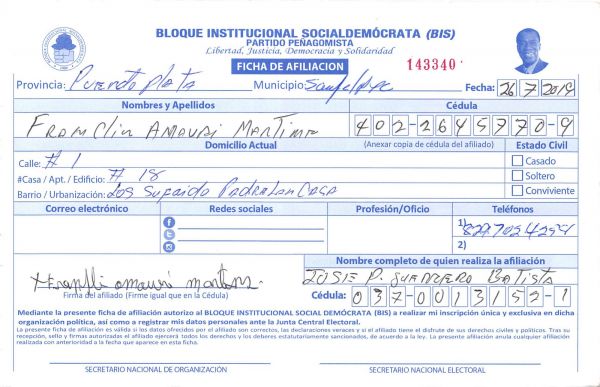 BLOQUE INSTITUCIONAL SOCIALDEMÓCRATA (BIS)
PARTIDO PEÑAGOMISTA
Libertad, Justicia, Democracia y Solidaridad
FICHA DE AFILIACION
143340
Provincia: Puerto Plata Municipio: Fecha: 26 7 2019
Nombres y Apellidos Cédula
Franclin Amauri Martine 402-2645770-9
Domicilio Actual (Anexar copia de cédula del afiliado) Estado Civil
Calle: # 1 Casado
#Casa / Apt. / Edificio: # 18 Soltero
Barrio / Urbanización: Los Conviviente
Correo electrónico Redes sociales Profesión/Oficio Teléfonos
1) 829702
2)
Nombre completo de quien realiza la afiliación
amauri JOSE P. GUERRERO BATISTA
Firma del afiliado (Firme igual que en la Cédula) Cédula: 037-0013152-1
Mediante la presente ficha de afiliación autorizo al BLOQUE INSTITUCIONAL SOCIAL DEMÓCRATA (BIS) a realizar mi inscripción única y exclusiva en dicha
organización política, así como a registrar mis datos personales ante la Junta Central Electoral.
La presente ficha de afiliación es válida si los datos ofrecidos por el afiliado son correctos, las declaraciones veraces y si el afiliado tiene el disfrute de sus derechos civiles y políticos. Tras su
recepción, sello y firmas autorizadas el afiliado ejercerá todos los derechos y los deberes estatutariamente sancionados, de acuerdo a la ley. La presente afiliación anula cualquier afiliación
realizada con anterioridad a la fecha que aparece en esta ficha.
SECRETARIO NACIONAL DE ORGANIZACIÓN SECRETARIO NACIONAL ELECTORAL